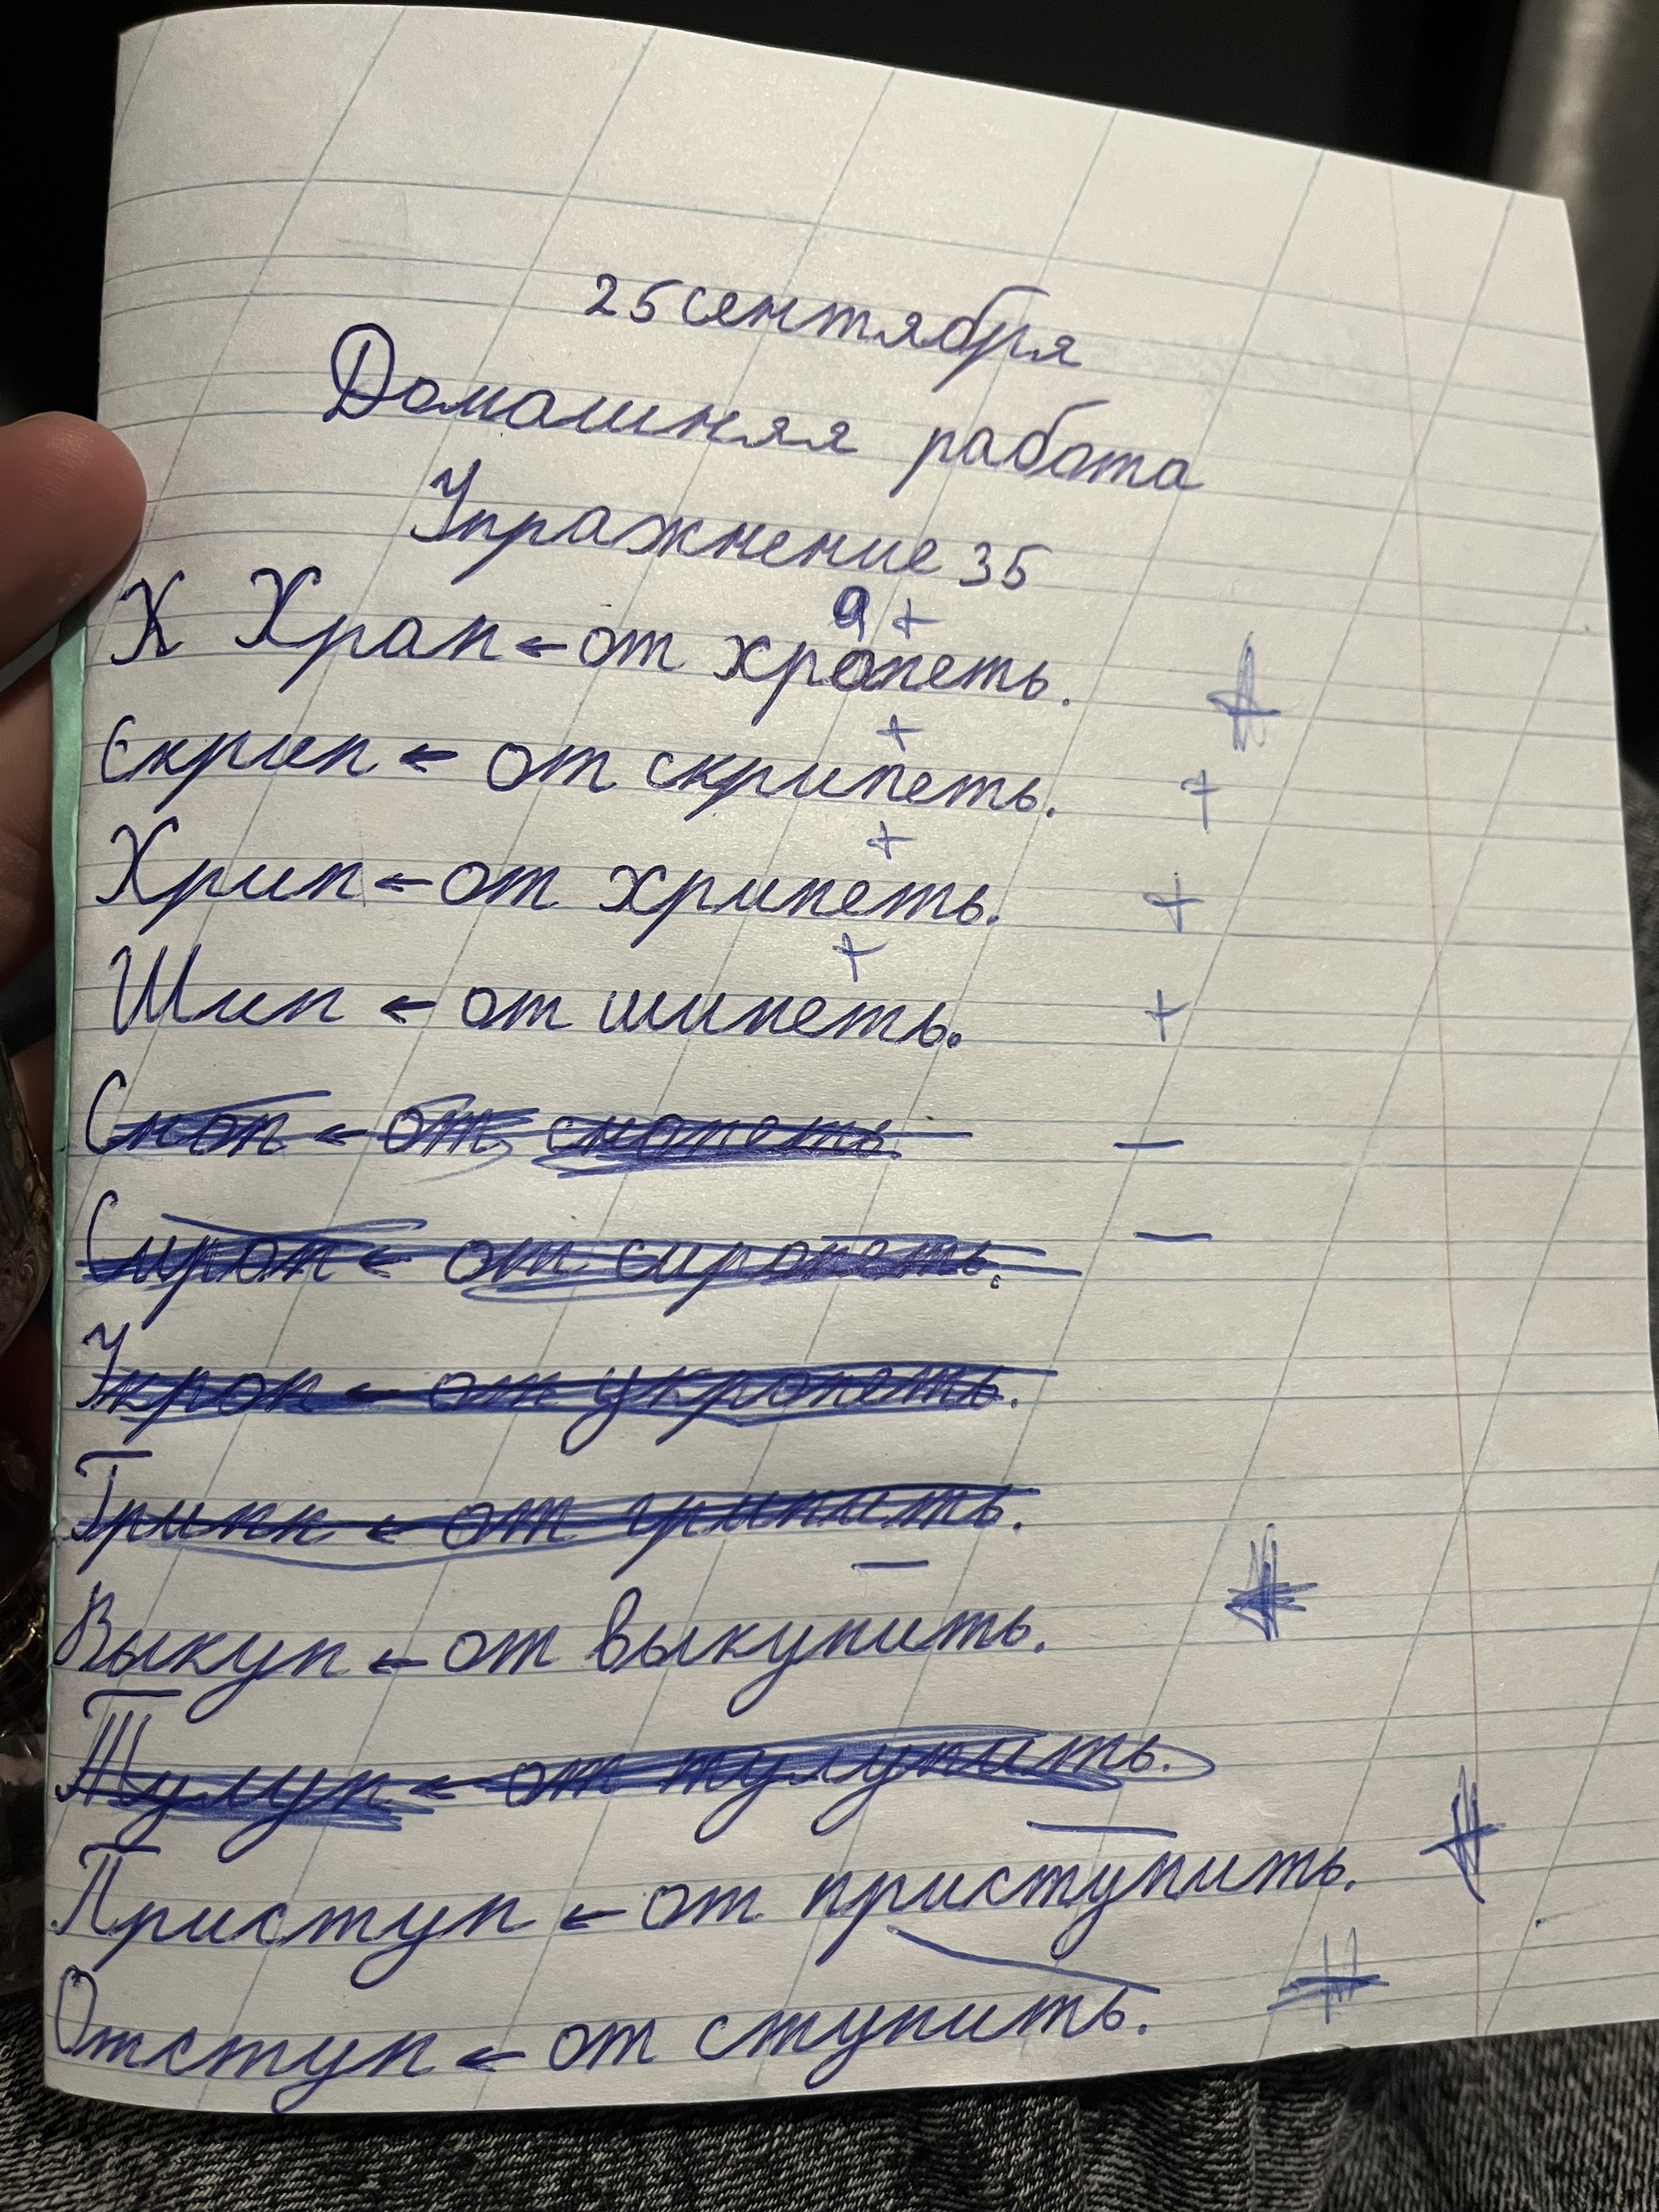 25 сентября
Домашняя работа
Упражнение 35
Х Храп ← от храпеть.
Скрип ← от скрипеть.
Хрип ← от хрипеть.
Шип ← от шипеть.
Сноп ← от снопеть
Сироп ← от сиропеть.
Укроп ← от укропеть.
Грипп ← от грипить.
Выкуп ← от выкупить.
Тулуп ← от тулупить.
Приступ ← от приступить.
Отступ ← от ступить.